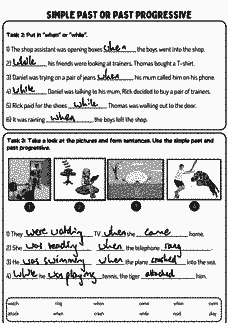 SIMPLE PAST OR PAST PROGRESSIVE
Task 2: Put in "when" or "while".
1) The shop assistant was opening boxes when the boys went into the shop.
2) While his friends were looking at trainers, Thomas bought a T-shirt.
3) Daniel was trying on a pair of jeans when his mum called him on his phone.
4) While Daniel was talking to his mum, Rick decided to buy a pair of trainers.
5) Rick paid for the shoes while Thomas was walking out to the door.
6) It was raining when the boys left the shop.
Task 3: Take a look at the pictures and form sentences. Use the simple past and
past progressive.
1 2 3 4
1) They were watching TV when she came home.
2) She was reading when the telephone rang.
3) He was swimming when the plane crashed into the sea.
4) While he was playing tennis, the tiger attacked him.
watch ring when come when swim
attack when crash while read play